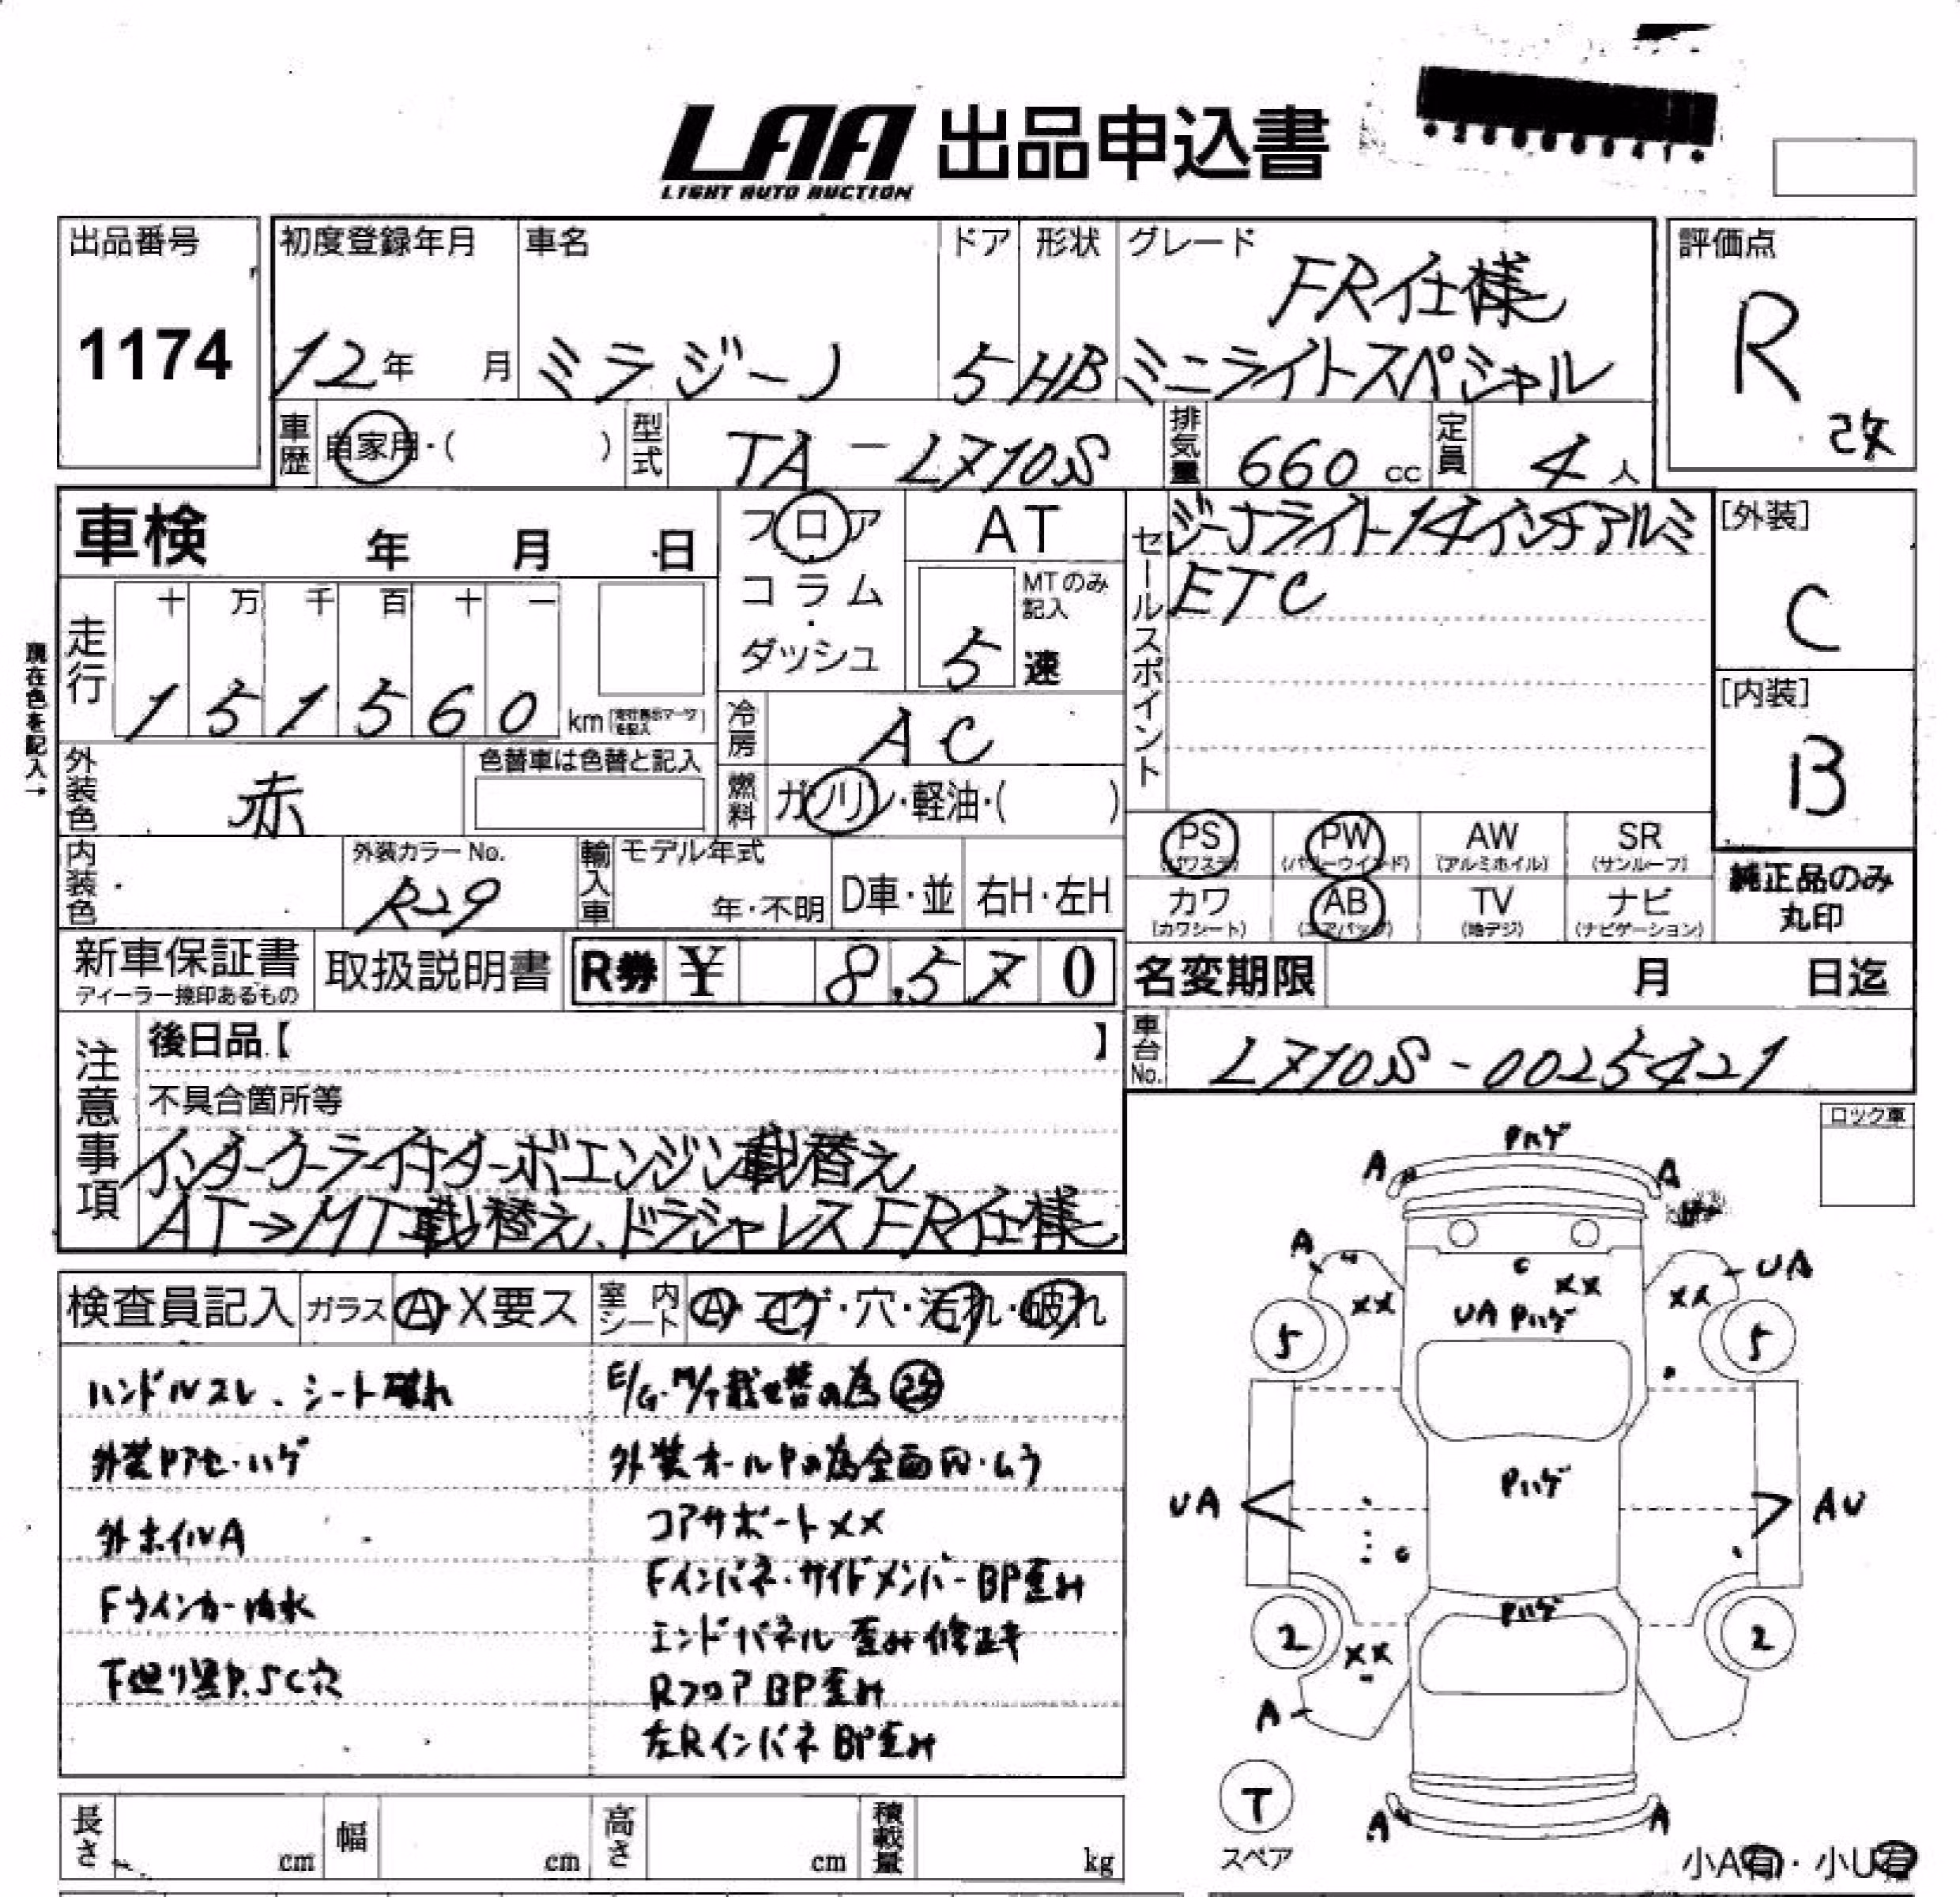 LAA 出品申込書
LIGHT AUTO AUCTION
出品番号
1174
初度登録年月
12年 月
車名
ミラジーノ
ドア
5
形状
HB
グレード
FR仕様
ミニライトスペシャル
評価点
R
改
車歴 自家用・( )
型式 TA-L710S
排気量 660 cc
定員 4人
車検 年 月 日
フロア・コラム・ダッシュ
AT
MTのみ記入
5速
セールスポイント
ジーノライト14インチアルミ
ETC
[外装]
C
[内装]
B
現在色を記入→
走行
十 万 千 百 十 一
1 5 1 5 6 0 km
冷房 AC
外装色 赤
色替車は色替と記入
燃料 ガソリン・軽油・( )
内装色
外装カラーNo.
R29
輸入車 モデル年式
年・不明
D車・並
右H・左H
PS (パワステ)
PW (パワーウインド)
AW (アルミホイル)
SR (サンルーフ)
カワ (カワシート)
AB (エアバッグ)
TV (地デジ)
ナビ (ナビゲーション)
純正品のみ
丸印
新車保証書
ディーラー捺印あるもの
取扱説明書
R券 ¥ 8,570
名変期限 月 日迄
車台No. L710S-0025421
注意事項
後日品【 】
不具合箇所等
インタークーラー付ターボエンジン載替え
AT→MT載替え、ドラシャレスFR仕様
ロック車
検査員記入
ガラス A・X要ス
室内シート A・コゲ・穴・汚れ・破れ
ハンドルスレ、シート破れ
外装Pアセ・ハゲ
外ホイルA
Fウインカー内水
下廻り黒P.SC穴
E/G・M/T載せ替の為改
外装オールPの為全面凹・ムラ
コアサポートXX
Fインパネ・サイドメンバーBP歪み
エンドパネル歪み修正キ
RフロアBP歪み
左RインパネBP歪み
Pハゲ
A A
A UA
C XX
XX XX
UA Pハゲ
5 5
UA Pハゲ AU
C
Pハゲ
2 2
XX
A
T
スペア
A A
小A有・小U有
長さ cm
幅 cm
高さ cm
積載量 kg